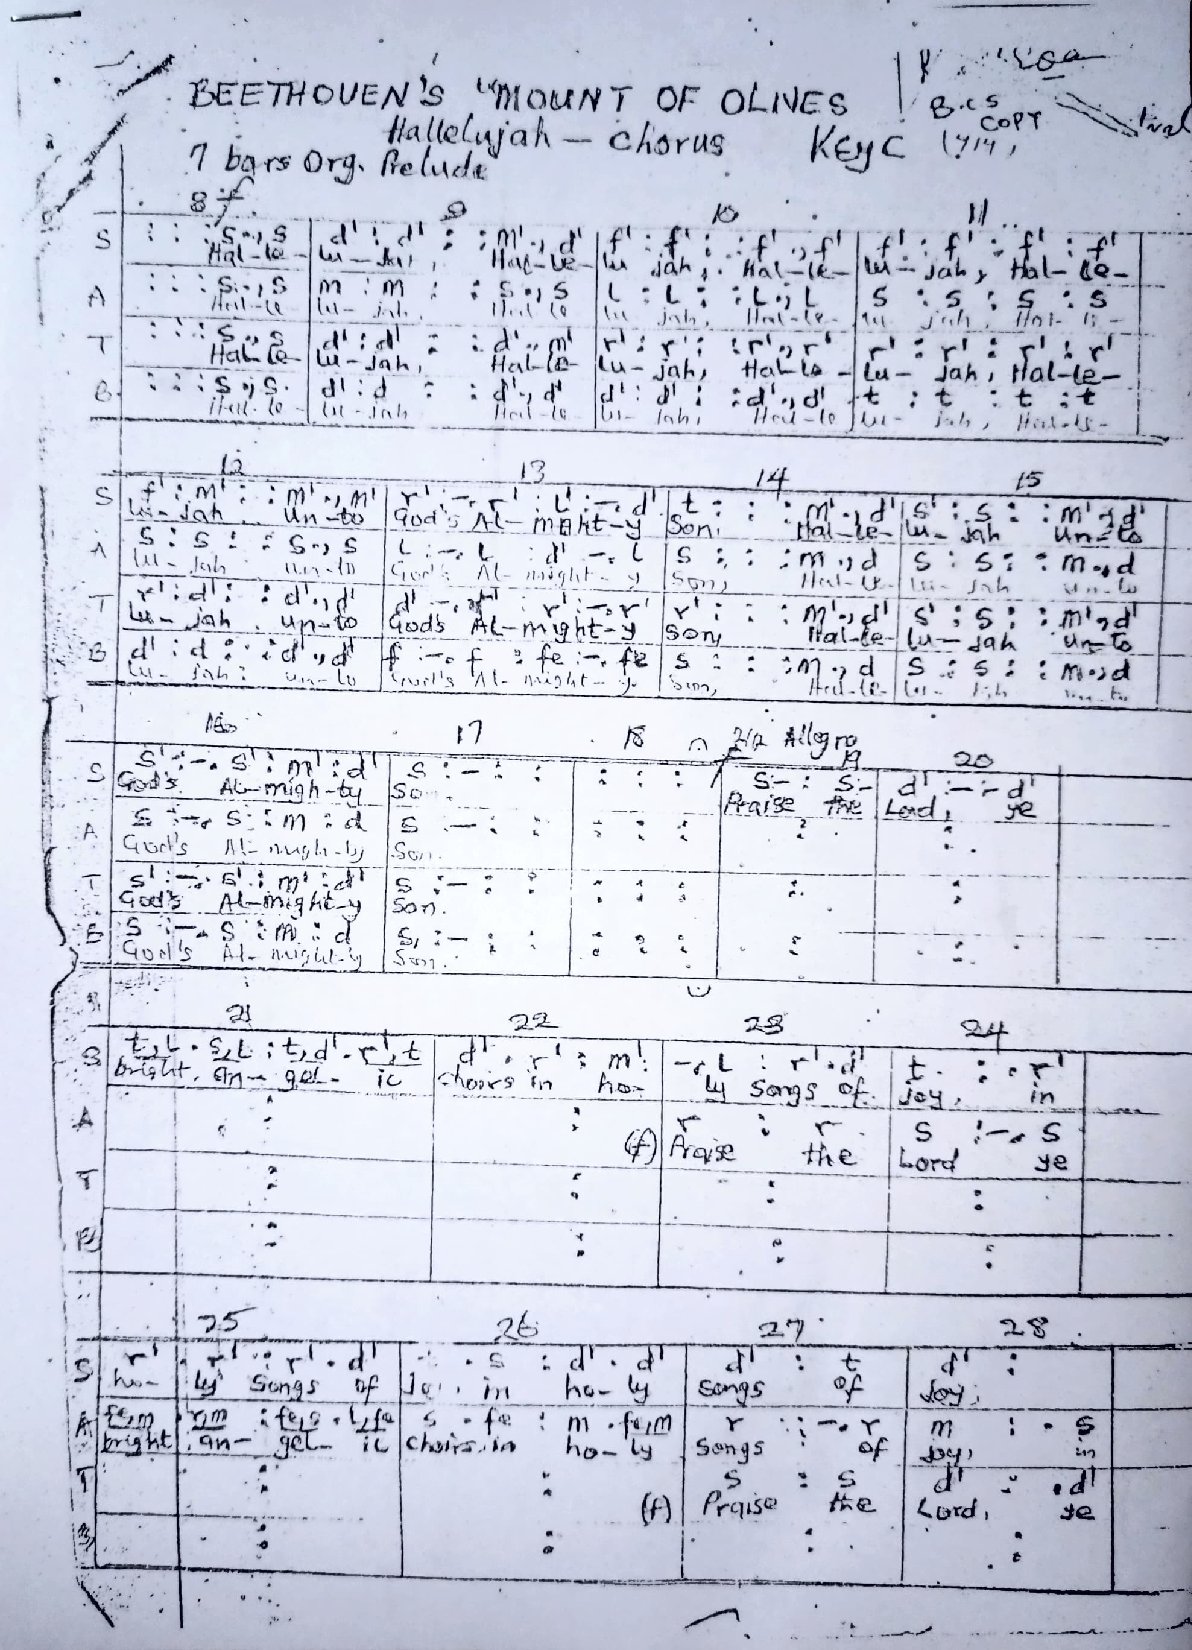 BEETHOVEN'S "MOUNT OF OLIVES
B.C.S
COPY
Hallelujah - Chorus KEY C
7 bars Org. Prelude
8 f 9 10 11
S : : : s ., s | d' : d' : : m' ., d' | f' : f' : : f' ., f' | f' : f' : f' : f'
Hal-le- lu-jah, Hal-le- lu jah, Hal-le- lu-jah, Hal-le-
A : : : s ., s | m : m : : s ., s | l : l : : l ., l | s : s : s : s
Hal-le lu-jah, Hal-le lu jah, Hal-le- lu jah, Hal-le-
T : : : s ., s | d' : d' : : d' ., m' | r' : r' : : r' ., r' | r' : r' : r' : r'
Hal-le- lu-jah, Hal-le- lu-jah, Hal-le- lu-jah, Hal-le-
B : : : s ., s | d' : d : : d' ., d' | d' : d' : : d' ., d' | t : t : t : t
Hal-le- lu-jah Hal-le- lu-jah, Hal-le lu-jah, Hal-le-
12 13 14 15
S f' : m' : : m' ., m' | r' : -. r' : l' : -. d' | t : : : m' ., d' | s' : s : : m' ., d'
lu-jah un-to God's Al-might-y Son, Hal-le- lu-jah un-to
A s : s : : s ., s | l : -. l : d' -. l | s : : : m ., d | s : s : : m ., d
lu-jah un-to God's Al-might-y Son, Hal-le- lu-jah un-to
T r' : d' : : d' ., d' | d' -. : r' : -. r' | r' : : : m' ., d' | s' : s : : m' ., d'
lu-jah un-to God's Al-might-y son, Hal-le- lu-jah un-to
B d' : d : : d' ., d' | f : -. f : fe : -. fe | s : : : m ., d | s : s : : m ., d
lu-jah un-to God's Al-might-y Son, Hal-le- lu-jah
16 17 18 2/2 Allegro 19 20
S s' : -. s' : m' : d' | s : - : : | : : : | s :- : s :- | d' : - : - d'
God's Al-migh-ty Son. Praise the Lord, ye
A s : -. s : m : d | s : - : : | : : : | : | :
God's Al-migh-ty Son.
T s' : -. s' : m' : d' | s : - : : | : : : | : | :
God's Al-might-y Son.
B s : -. s : m : d | s, : - : : | : : : | : | :
God's Al-might-y Son.
21 22 23 24
S t,l . s,l : t,d' . r',t | d' . r' : m' | -, l : r' . d' | t . : . r'
bright, an-gel-ic choirs in ho- ly songs of joy, in
A : | : | r : r | s : -. s
(f) Praise the Lord ye
T : | : | : | :
B : | : | : | :
25 26 27 28
S r' . r' : r' . d' | . s : d' . d' | d' : t | d' :
ho- ly songs of in ho-ly songs of Joy,
A fe,m . r,m : fe,s . l,fe | s . fe : m . fe,m | r : -. r | m : . s
bright, an-gel-ic choirs in ho-ly songs of joy,
T : | : | s : s | d' : . d'
(f) Praise the Lord, ye
B : | : | : | :